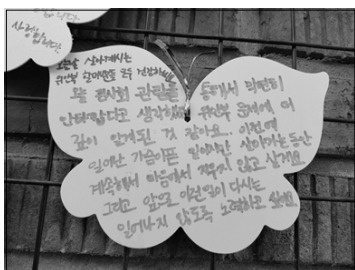 사랑합니다
오늘날 살아계시는
위안부 할머니들 모두 건강하세요
오늘 전시회 관람을 통해서 막연히
안타깝다고 생각해 위안부 문제에 더
깊이 알게된 것 같아요... 이번에
일어난 가슴아픈 일이지만 살아가는동안
계속해서 마음에서 지우지 않고 살게요.
그리고 앞으로 이런일이 다시는
일어나지 않도록 노력하고